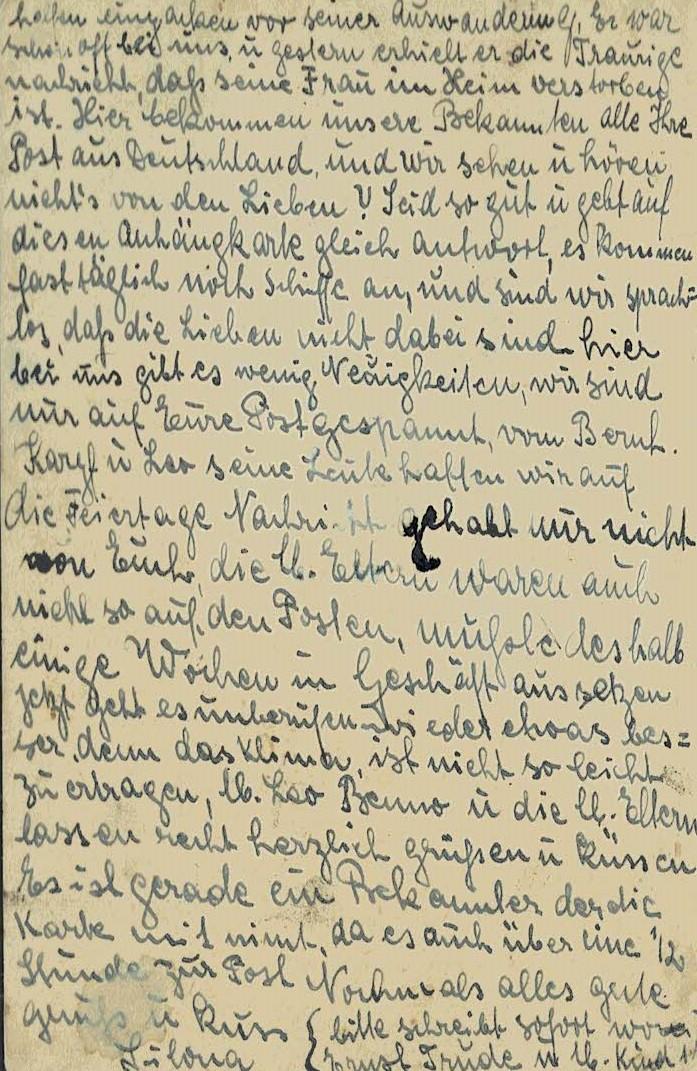 helfen einpacken vor seiner Auswanderung. Er war
schon oft bei uns, u gestern erhielt er die Traurige
nachricht, daß seine Frau im Heim verstorben
ist. Hier bekommen unsere Bekannten alle Ihre
Post aus Deutschland, und wir sehen u hören
nicht's von den Lieben? Seid so gut u gebt auf
diesen Anhängkarte gleich antwort, es kommen
fast täglich noch Schiffe an, und sind wir sprach=
los, daß die Lieben nicht dabei sind hier
bei uns gibt es wenig Neuigkeiten, wir sind
nur auf Eure Post gespannt, vom Bernh.
u Leo seine Leute haffen wir auf
die Feiertage Nachricht gehabt nur nicht
von Euch, die lb. Eltern waren auch
nicht so auf den Posten, mußte deshalb
einige Wochen in Geschäft aussetzen
jetzt geht es unberufen wieder etwas bes=
ser, denn das Klima, ist nicht so leicht
zu ertragen, lb. Leo Benno u die lb. Eltern
lassen recht herzlich grüßen u küssen
Es ist gerade ein Bekannter der die
Karte mit nimt, da es auch über eine 1/2
Stunde zur Post Nochmals alles gute
gruß u Kuss { bitte schreibt sofort
Ernst Trude u lb. Kind